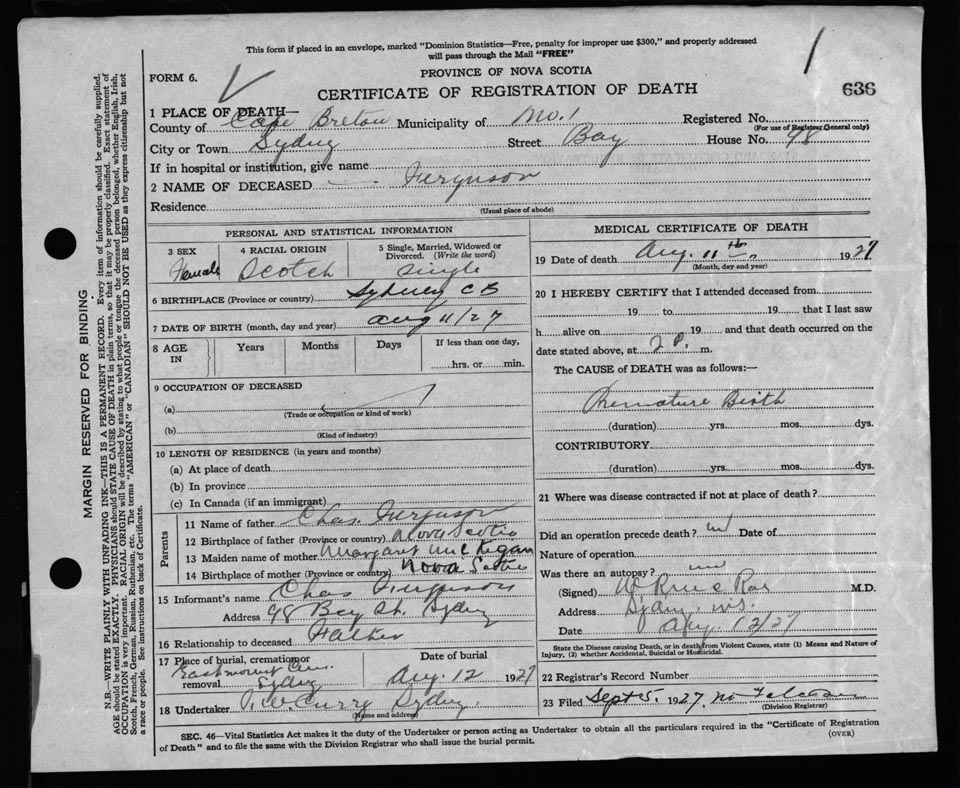 This form if placed in an envelope, marked "Dominion Statistics—Free, penalty for improper use $300," and properly addressed
will pass through the Mail "FREE"
FORM 6.
PROVINCE OF NOVA SCOTIA
CERTIFICATE OF REGISTRATION OF DEATH
636
1 PLACE OF DEATH—
County of Cape Breton Municipality of No. 1 Registered No.
(For use of Registrar General only)
City or Town Sydney Street Bay House No. 98
If in hospital or institution, give name
2 NAME OF DECEASED Ferguson
Residence
(Usual place of abode)
PERSONAL AND STATISTICAL INFORMATION
3 SEX Female
4 RACIAL ORIGIN Scotch
5 Single, Married, Widowed or Divorced. (Write the word) Single
6 BIRTHPLACE (Province or country) Sydney C B
7 DATE OF BIRTH (month, day and year) Aug 11/27
8 AGE IN Years Months Days If less than one day, hrs. or min.
9 OCCUPATION OF DECEASED
(a)
(Trade or occupation or kind of work)
(b)
(Kind of industry)
10 LENGTH OF RESIDENCE (in years and months)
(a) At place of death
(b) In province
(c) In Canada (if an immigrant)
Parents
11 Name of father Chas. Ferguson
12 Birthplace of father (Province or country) Nova Scotia
13 Maiden name of mother Margaret
14 Birthplace of mother (Province or country) Nova Scotia
15 Informant's name Chas Ferguson
Address 98 Bay St. Sydney
16 Relationship to deceased Father
17 Place of burial, cremation or removal Eastmount Cem. Sydney
Date of burial Aug. 12 1927
18 Undertaker Curry Sydney.
(Name and address)
MEDICAL CERTIFICATE OF DEATH
19 Date of death Aug. 11th 1927
(Month, day and year)
20 I HEREBY CERTIFY that I attended deceased from
19 to 19 that I last saw
h alive on 19 and that death occurred on the
date stated above, at 2 P. m.
The CAUSE of DEATH was as follows:—
Premature Birth
(duration) yrs. mos. dys.
CONTRIBUTORY
(duration) yrs. mos. dys.
21 Where was disease contracted if not at place of death?
Did an operation precede death? Date of
Nature of operation
Was there an autopsy?
(Signed) M.D.
Address Sydney N.S.
Date 12/27
State the Disease causing Death, or in death from Violent Causes, state (1) Means and Nature of
Injury, (2) whether Accidental, Suicidal or Homicidal.
22 Registrar's Record Number
23 Filed Sept 5. 1927.
(Division Registrar)
SEC. 46—Vital Statistics Act makes it the duty of the Undertaker or person acting as Undertaker to obtain all the particulars required in the "Certificate of Registration
of Death" and to file the same with the Division Registrar who shall issue the burial permit.
(OVER)
MARGIN RESERVED FOR BINDING
N.B.—WRITE PLAINLY WITH UNFADING INK—THIS IS A PERMANENT RECORD. Every item of information should be carefully supplied.
AGE should be stated EXACTLY. PHYSICIANS should STATE CAUSE OF DEATH in plain terms, so that it may be properly classified. Exact statement of
OCCUPATION is very important. RACIAL ORIGIN will be described by stating to what people or tongue the deceased person belonged, whether English, Irish,
Scotch, French, German, Russian, Ruthenian, etc. The terms "AMERICAN" or "CANADIAN" SHOULD NOT BE USED as they express citizenship but not
a race or people. See instructions on back of Certificate.